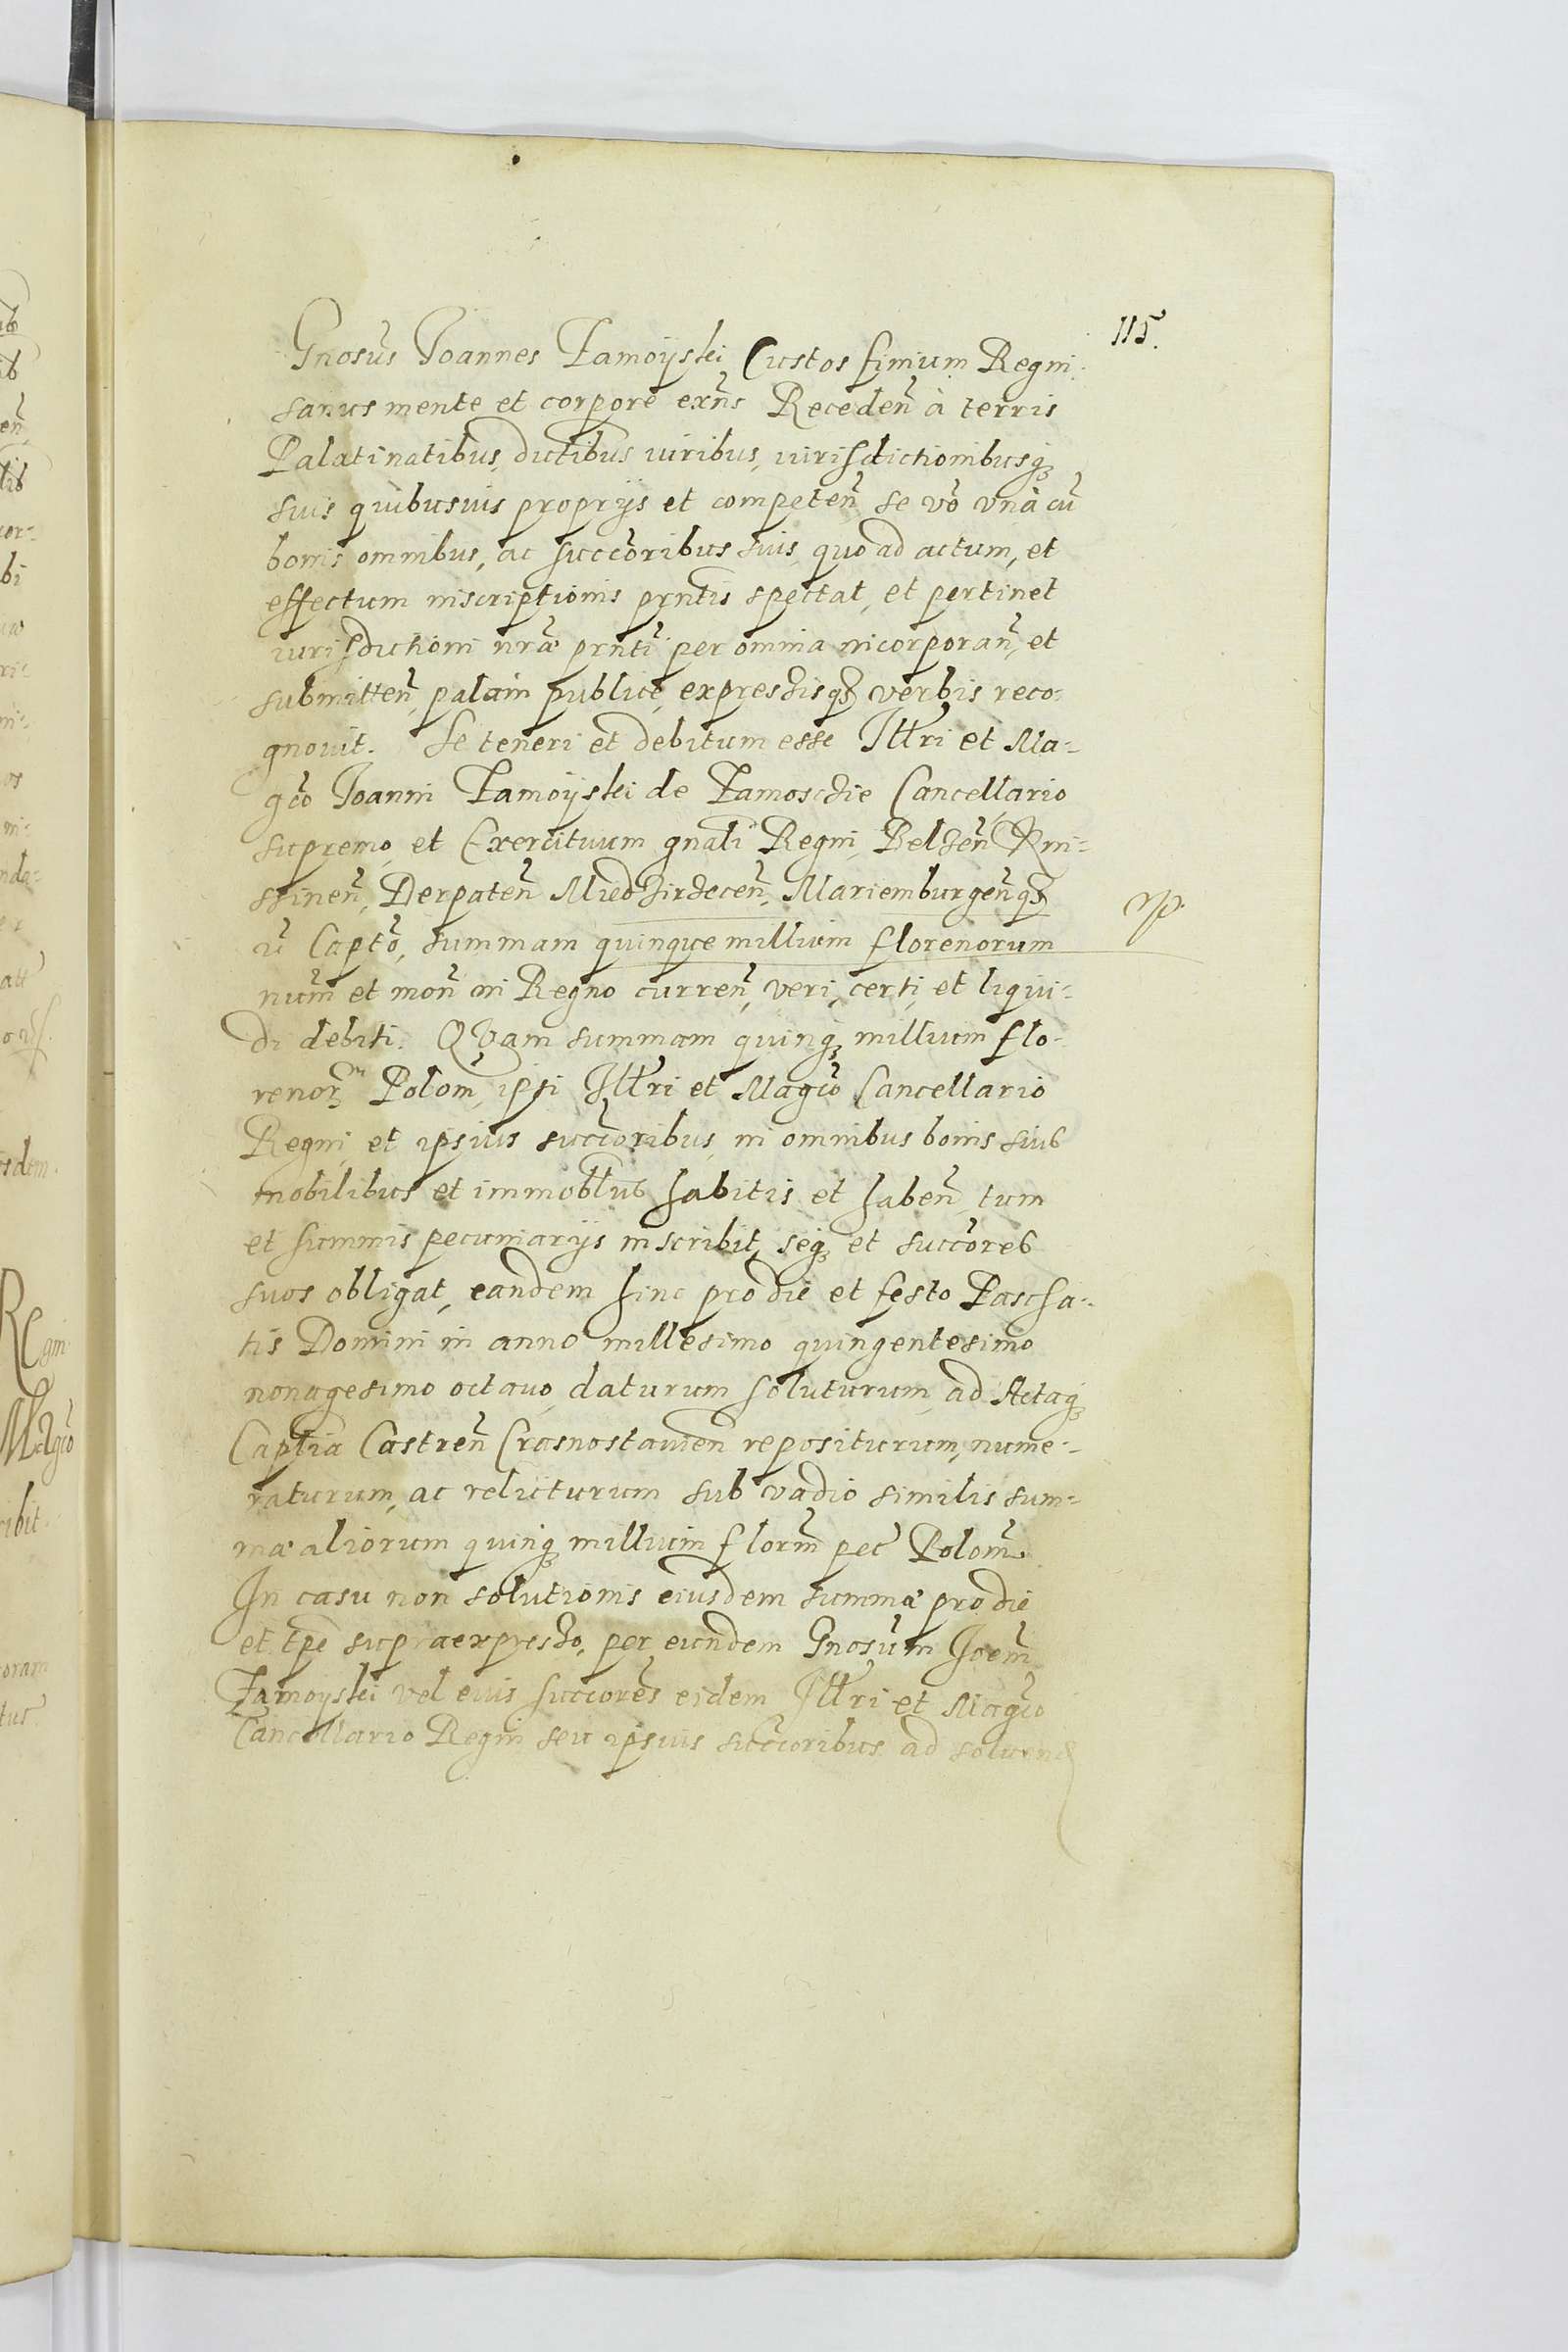 115.
Gnosus Joannes Zamoÿski Custos finium Regni
sanus mente et corpore exñs Receden̄ à terris
Palatinatibus, dictibus iuribus, iurisdictionibusq̃
suis quibusuis proprijs et competen̄ se vō vnà cū
bonis omnibus, ac succōribus suis, quo ad actum, et
effectum inscriptionis pr̃ntis spectat, et pertinet
iurisdictioni nr̃æ pr̃nti per omnia incorporan̄, et
submitten̄, palam publice, expressisq̃ verbis reco-
gnouit. Se teneri et debitum esse Illr̃i et Ma-
gcō Joanni Zamoÿski de Zamoscie Cancellario
supremo, et Exercituum gnāli Regni, Belzen̄ Kni-
ssinen̄, Derpaten̄ Miedzirzecen̄, Mariemburgen̄q̃
Captō, summam quinque millium florenorum
num̄ et mon̄ in Regno curren̄, veri, certi, et liqui-
di debiti. QVam summam quinq̃ millium flo-
renor̃ Polom̄, ipsi Illr̃i et Magcō Cancellario
Regni, et ipsius succōribus, in omnibus bonis suis
mobilibus et immobl̃ibus habitis et haben̄ tum
et summis pecuniarijs inscribit, seq̃ et succōres
suos obligat, eandem hinc pro die et festo Pascha-
tis Domini in anno millesimo quingentesimo
nonagesimo octauo, daturum soluturum, ad Actaq̃
Captia Castren̄ Crasnostauien̄ repositurum, nume-
raturum, ac relicturum sub vadio similis sum-
mæ aliorum quinq̃ millium florm̄ pec̄ Polom̄.
In casu non solutionis eiusdem summæ pro die
et tp̃e supraexpresso, per eundem Gnosūm Joem̄
Zamoyski vel eius succōres eidem Illr̃i et Magcō
Cancellario Regni seu ipsius succōribus ad soluend